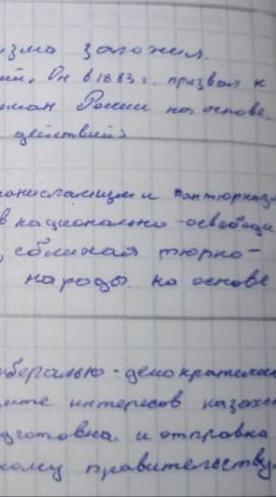 изма заложил
ий. Он в 1883 г. призвал к
ман России на основе
действий>
панисламизм и пантюркизм
в национально-освободи
, сближая тюрко-
народы на основе
иберально-демократическ
щите интересов казахс
одготовка и отправка
кому правительству